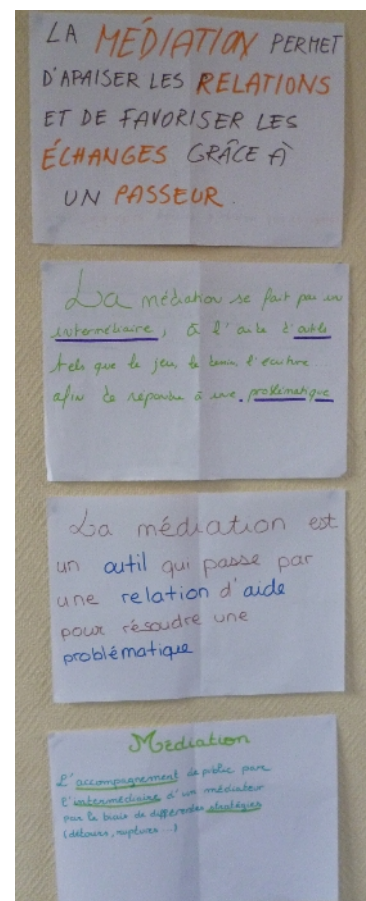 LA MÉDIATION PERMET
D'APAISER LES RELATIONS
ET DE FAVORISER LES
ÉCHANGES GRÂCE À
UN PASSEUR.
La médiation se fait par un
intermédiaire, à l'aide d'outils
tels que le jeu, le dessin, l'écriture
afin de répondre à une problématique
La médiation est
un outil qui passe par
une relation d'aide
pour résoudre une
problématique
Médiation
L'accompagnement de public par
l'intermédiaire d'un médiateur
par le biais de différentes stratégies
(détours, ruptures...)